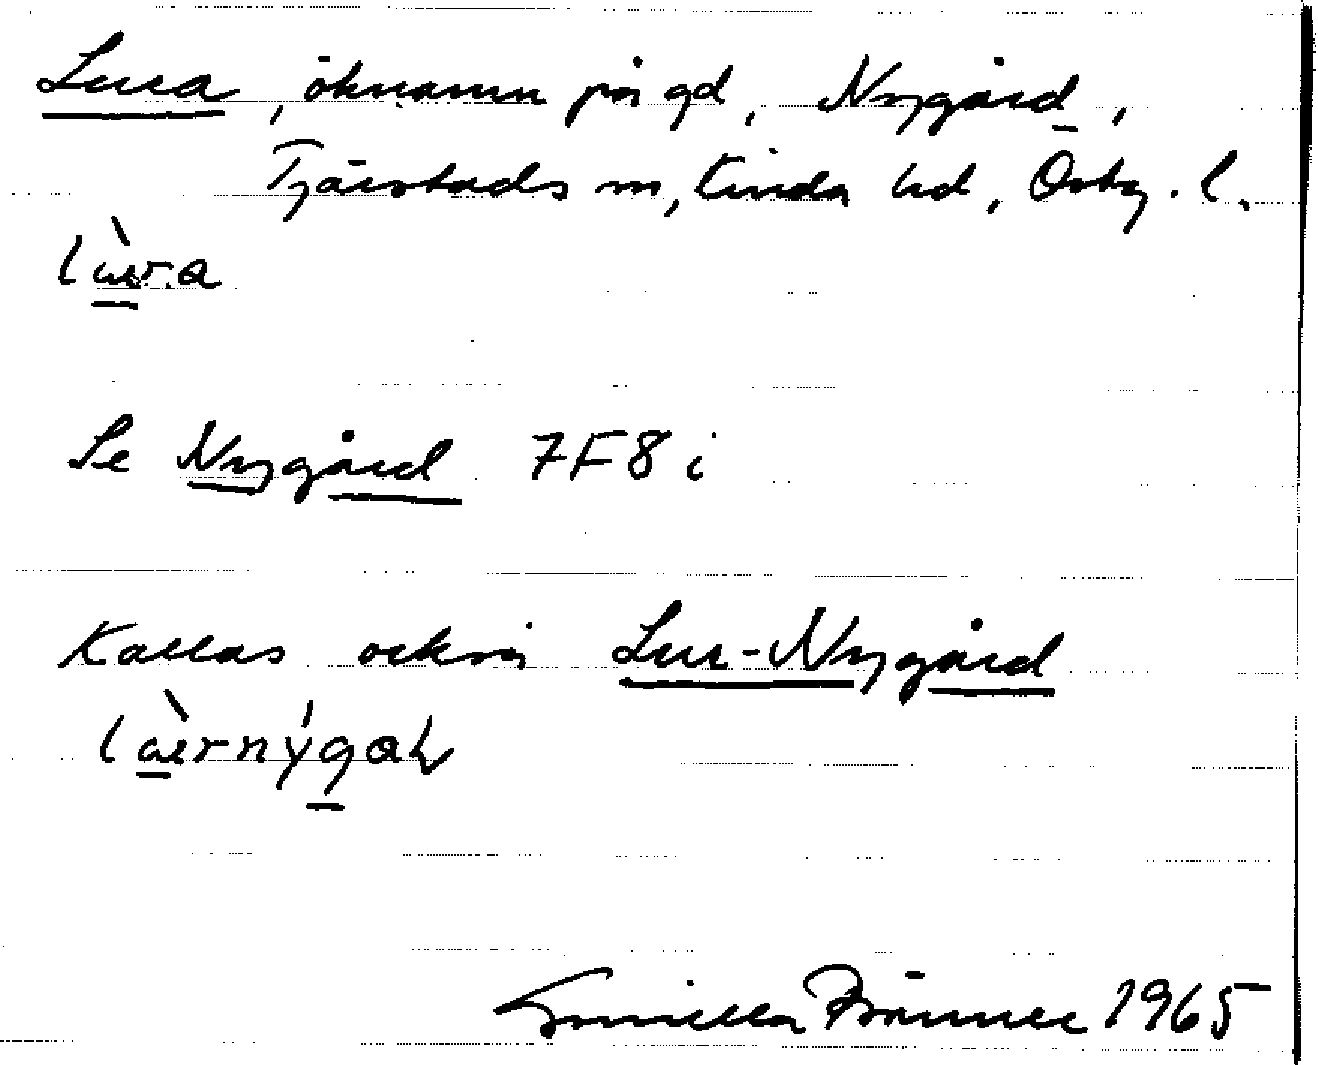 Lura, öknamn på gd, Nygård,
Tjärstads sn, Kinda hd, Östg. l.
Se Nygård 7F8i
Kallas också Lur-Nygård
Gunilla 1965